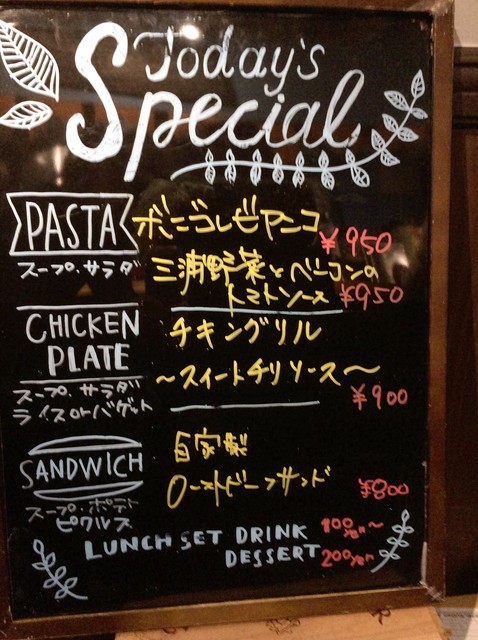 Today's
Special
PASTA
ボンゴレビアンコ
¥950
スープ・サラダ
三浦野菜とベーコンの
トマトソース ¥950
CHICKEN
PLATE
チキングリル
〜スイートチリソース〜
スープ・サラダ
ライスorバゲット
¥900
SANDWICH
自家製
ローストビーフサンド
¥800
スープ・ポテト
ピクルス
LUNCH SET DRINK 100yen〜
DESSERT 200yen